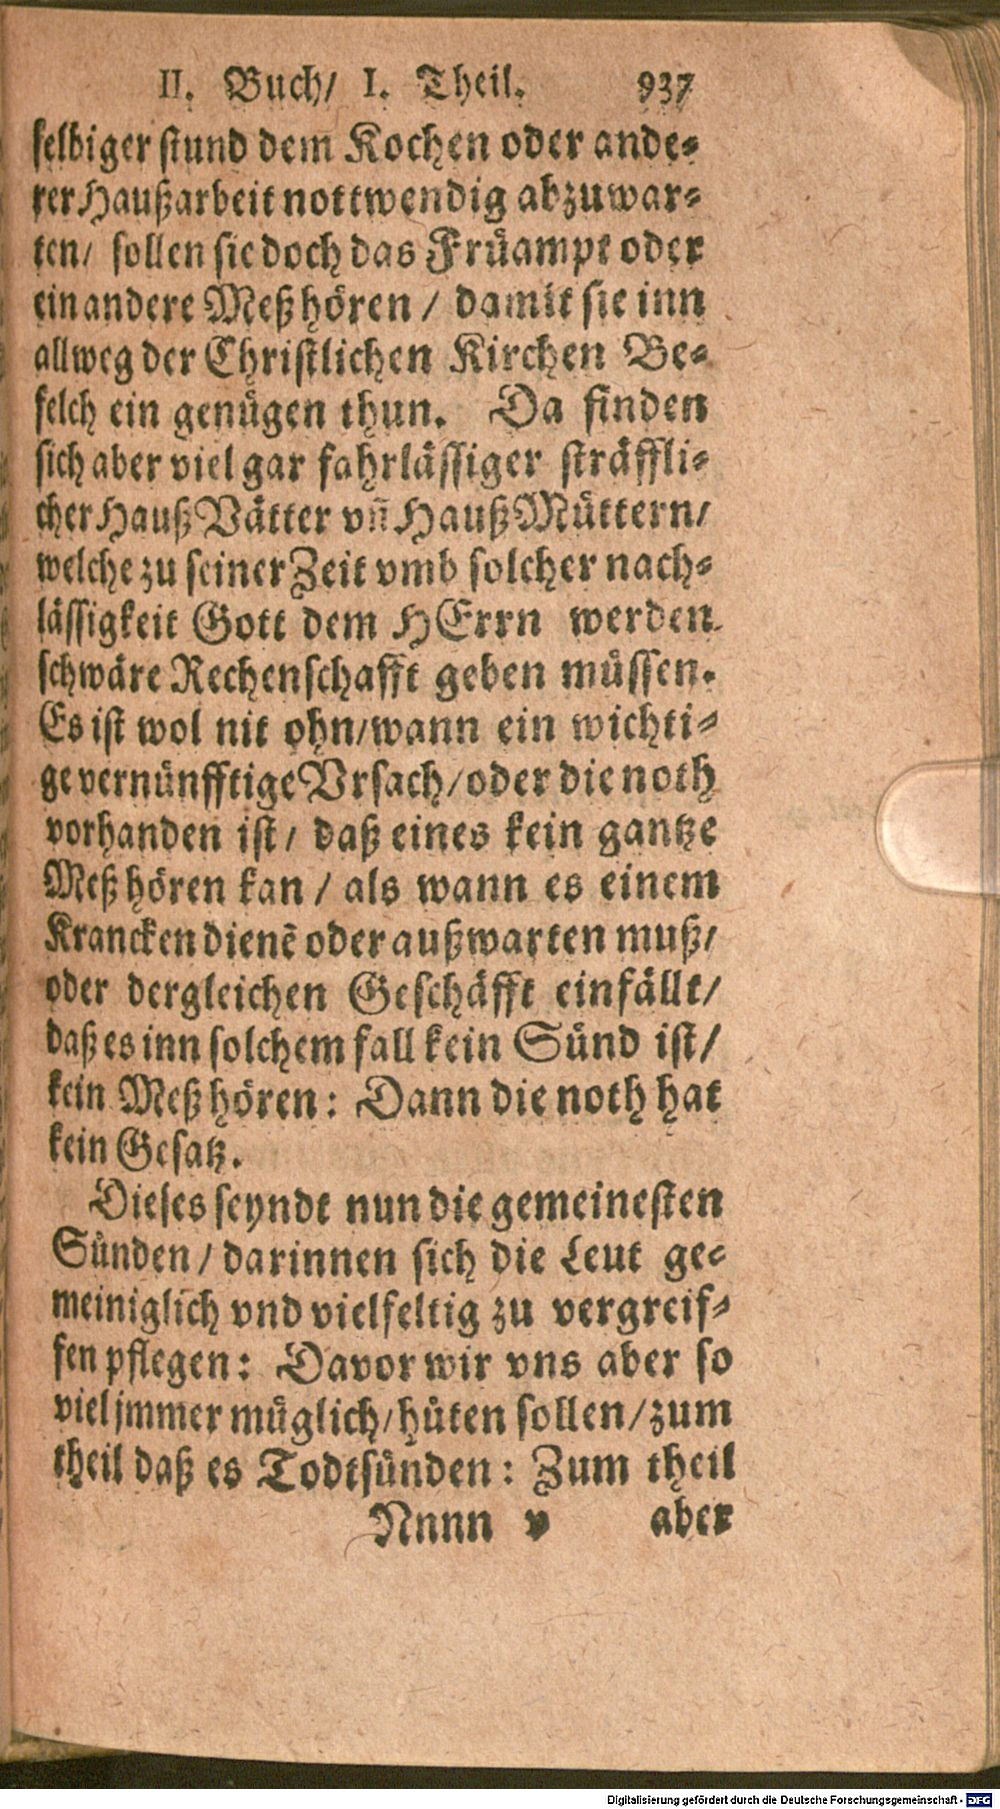 II. Buch/ I. Theil. 937
selbiger stund dem Kochen oder ande-
rer Haußarbeit nottwendig abzuwar-
ten/ sollen sie doch das Früampt oder
ein andere Meß hören / damit sie inn
allweg der Christlichen Kirchen Be-
felch ein genügen thun. Da finden
sich aber viel gar fahrlässiger sträffli-
cher Hauß Vätter vñ Hauß Müttern/
welche zu seiner Zeit vmb solcher nach-
lässigkeit Gott dem HErrn werden
schwäre Rechenschafft geben müssen.
Es ist wol nit ohn/wann ein wichti-
ge vernünfftige Vrsach/oder die noth
vorhanden ist/ daß eines kein gantze
Meß hören kan / als wann es einem
Krancken dienẽ oder außwarten muß/
oder dergleichen Geschäfft einfällt/
daß es inn solchem fall kein Sünd ist/
kein Meß hören: Dann die noth hat
kein Gesatz.
Dieses seyndt nun die gemeinesten
Sünden / darinnen sich die Leut ge-
meiniglich vnd vielfeltig zu vergreif-
fen pflegen: Davor wir vns aber so
viel jmmer müglich/hüten sollen/zum
theil daß es Todtsünden: Zum theil
Nnnn v aber
Digitalisierung gefördert durch die Deutsche Forschungsgemeinschaft - DFG